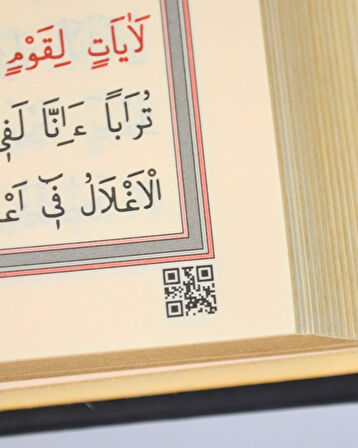 لَاٰيَاتٍ لِقَوْمٍ
تُرَاباً ءَاِنَّا لَفٖى
الْاَغْلَالُ فٖٓى